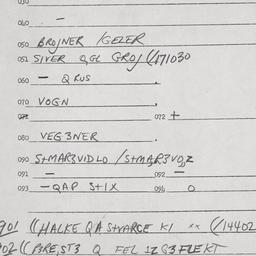 030
040 —
050 BROJNER /GELER
051 SIVER QGL GROJ ((171030
060 — QRUS
070 VOGN
072 +
080 VEG3NER
090 S+MAR3VIDLO /S+MAR3VOZ
091 — 092 —
093 —QAP 3+1X 096 O
901 ((HALKE QA S+VARCE KI ×× (/14402
902 ((P3RE,ST3 Q FEL 1Z G3FLEKT